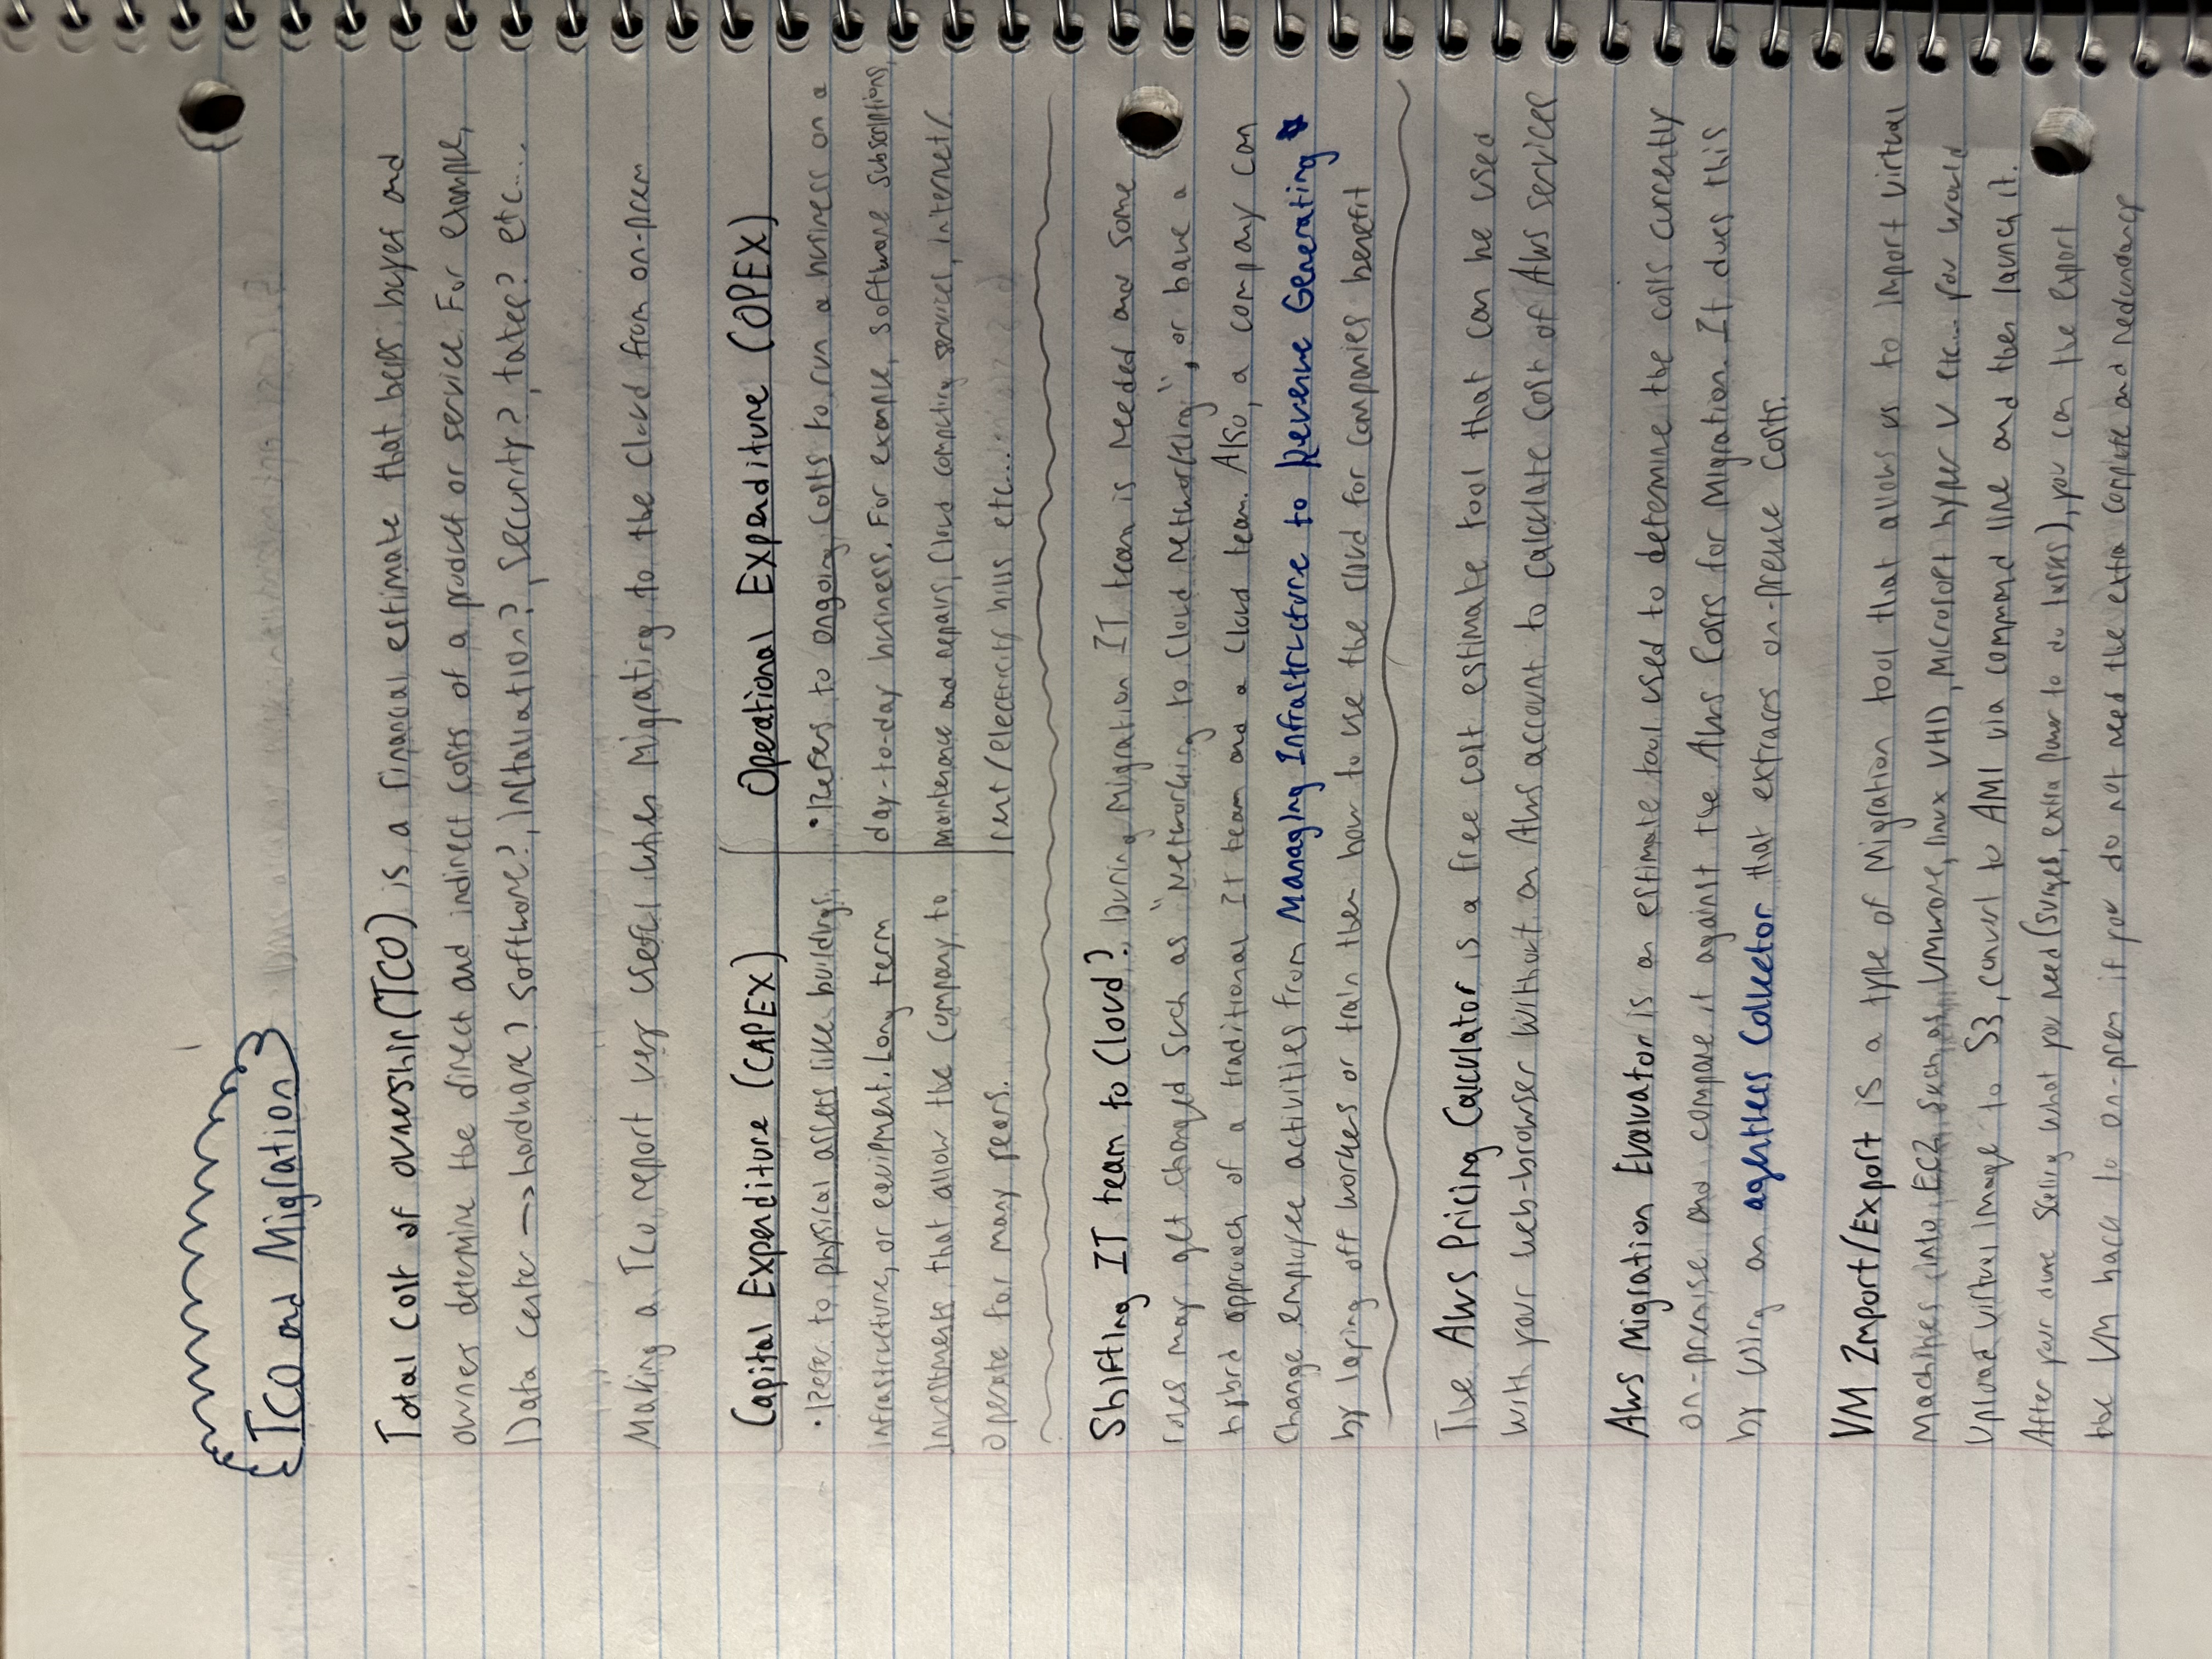 TCO and Migration
Total Cost of ownership (TCO) is a financial estimate that helps buyer and
owner determine the direct and indirect costs of a product or service. For example,
Data center → hardware? software?, installation?, security?, taxes? etc....
Making a TCO report very useful when Migrating to the Cloud from on-prem
Capital Expenditure (CAPEX)
• Refer to physical assets like buildings,
infrastructure, or equipment. Long term
investments that allow the company to
operate for many years.
Operational Expenditure (OPEX)
• Refers to ongoing costs to run a business on a
day-to-day business. For example, software subscriptions,
maintenance and repairs, Cloud computing services, internet/
rent/electricity bills etc...
Shifting IT team to Cloud? During Migration IT team is needed and some
roles may get changed such as "Networking to Cloud networking", or have a
hybrd approach of a traditional IT team and a Cloud team. Also, a company can
Change employee activities from Managing Infrastructure to Revenue Generating ★
by laying off workers or train them how to use the cloud for companies benefit
The AWS Pricing Calculator is a free cost estimate tool that can be used
with your web-browser without an AWS account to calculate cost of AWS services
AWS Migration Evaluator is an estimate tool used to determine the costs currently
on-premise and compare it against the AWS Costs for Migration. It does this
by using an agentless Collector that extraces on-premise costs.
VM Import/Export is a type of Migration tool that allows us to import virtual
Machines into EC2 such as VMware, linux VHD, Microsoft hyper V etc... you would
Upload virtual image to S3, convert to AMI via command line and then launch it.
After your done scaling what you need (surges, extra power to do tasks), you can the export
the VM back to on-prem if you do not need the extra compute and redundancy